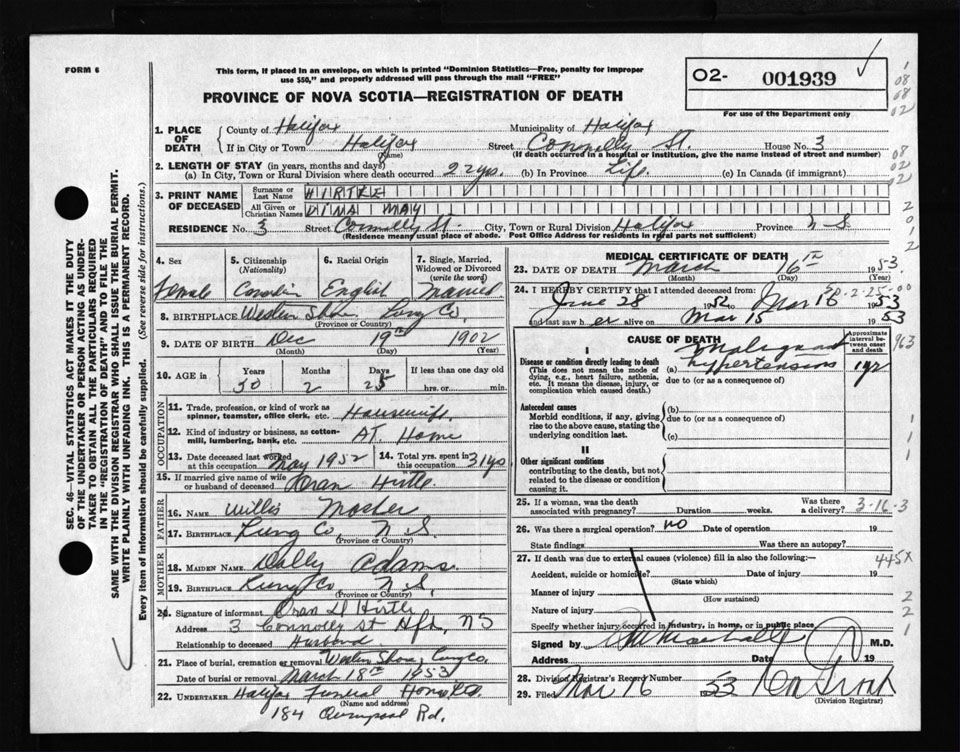 FORM 6
This form, if placed in an envelope, on which is printed "Dominion Statistics—Free, penalty for improper
use $50," and properly addressed will pass through the mail "FREE"
PROVINCE OF NOVA SCOTIA—REGISTRATION OF DEATH
O2- 001939
For use of the Department only
1. PLACE OF DEATH
County of Halifax Municipality of Halifax
If in City or Town Halifax (Name) Street Connolly St. House No. 3
(If death occurred in a hospital or institution, give the name instead of street and number)
2. LENGTH OF STAY (in years, months and days)
(a) In City, Town or Rural Division where death occurred 22 yrs. (b) In Province Life (c) In Canada (if immigrant)
3. PRINT NAME OF DECEASED
Surname or Last Name HIRTLE
All Given or Christian Names MAY
RESIDENCE No. 3 Street Connolly St City, Town or Rural Division Halifax Province N S
(Residence means usual place of abode. Post Office Address for residents in rural parts not sufficient)
4. Sex Female
5. Citizenship (Nationality) Canadian
6. Racial Origin English
7. Single, Married, Widowed or Divorced (write the word) Married
8. BIRTHPLACE Western Shore Lung Co.
(Province or Country)
9. DATE OF BIRTH Dec 19th 1902
(Month) (Day) (Year)
10. AGE in Years Months Days If less than one day old
50 2 25 hrs. or min.
OCCUPATION
11. Trade, profession, or kind of work as spinner, teamster, office clerk, etc. Housewife
12. Kind of industry or business, as cotton-mill, lumbering, bank, etc. At Home
13. Date deceased last worked at this occupation May 1952
14. Total yrs. spent in this occupation 31 yrs
15. If married give name of wife or husband of deceased Oran Hirtle
FATHER
16. NAME Willis Mosher
17. BIRTHPLACE Lung Co, N S.
(Province or Country)
MOTHER
18. MAIDEN NAME Dolly Adams
19. BIRTHPLACE Lung Co N S.
(Province or Country)
20. Signature of informant Oran D Hirtle
Address 3 Connolly St Hfx, NS
Relationship to deceased Husband
21. Place of burial, cremation or removal Western Shore, Lung Co.
Date of burial or removal March 18th 1953
22. UNDERTAKER Halifax Funeral Home Ltd.
(Name and address)
184 Rd.
MEDICAL CERTIFICATE OF DEATH
23. DATE OF DEATH March 16th 1953.
(Month) (Day) (Year)
24. I HEREBY CERTIFY that I attended deceased from:
June 28 1952 to Mar 16 1953
and last saw h er alive on Mar 15 1953
CAUSE OF DEATH
Approximate interval between onset and death
I
Disease or condition directly leading to death
(This does not mean the mode of dying, e.g., heart failure, asthenia, etc. It means the disease, injury, or complication which caused death.)
(a) Malignant hypertension
due to (or as a consequence of)
Antecedent causes
Morbid conditions, if any, giving rise to the above cause, stating the underlying condition last.
(b)
due to (or as a consequence of)
(c)
II
Other significant conditions
contributing to the death, but not related to the disease or condition causing it.
25. If a woman, was the death associated with pregnancy? Duration weeks. Was there a delivery? 3-16-3
26. Was there a surgical operation? no Date of operation 19
State findings Was there an autopsy?
27. If death was due to external causes (violence) fill in also the following:— 445X
Accident, suicide or homicide? Date of injury 19
(State which)
Manner of injury
(How sustained)
Nature of injury
Specify whether injury occurred in industry, in home, or in public place
Signed by M.D.
Address Date 19
28. Division Registrar's Record Number
29. Filed Mar 16 53
(Division Registrar)
SEC. 46—VITAL STATISTICS ACT MAKES IT THE DUTY
OF THE UNDERTAKER OR PERSON ACTING AS UNDER-
TAKER TO OBTAIN ALL THE PARTICULARS REQUIRED
IN THE "REGISTRATION OF DEATH" AND TO FILE THE
SAME WITH THE DIVISION REGISTRAR WHO SHALL ISSUE THE BURIAL PERMIT.
WRITE PLAINLY WITH UNFADING INK. THIS IS A PERMANENT RECORD.
Every item of information should be carefully supplied. (See reverse side for instructions.)